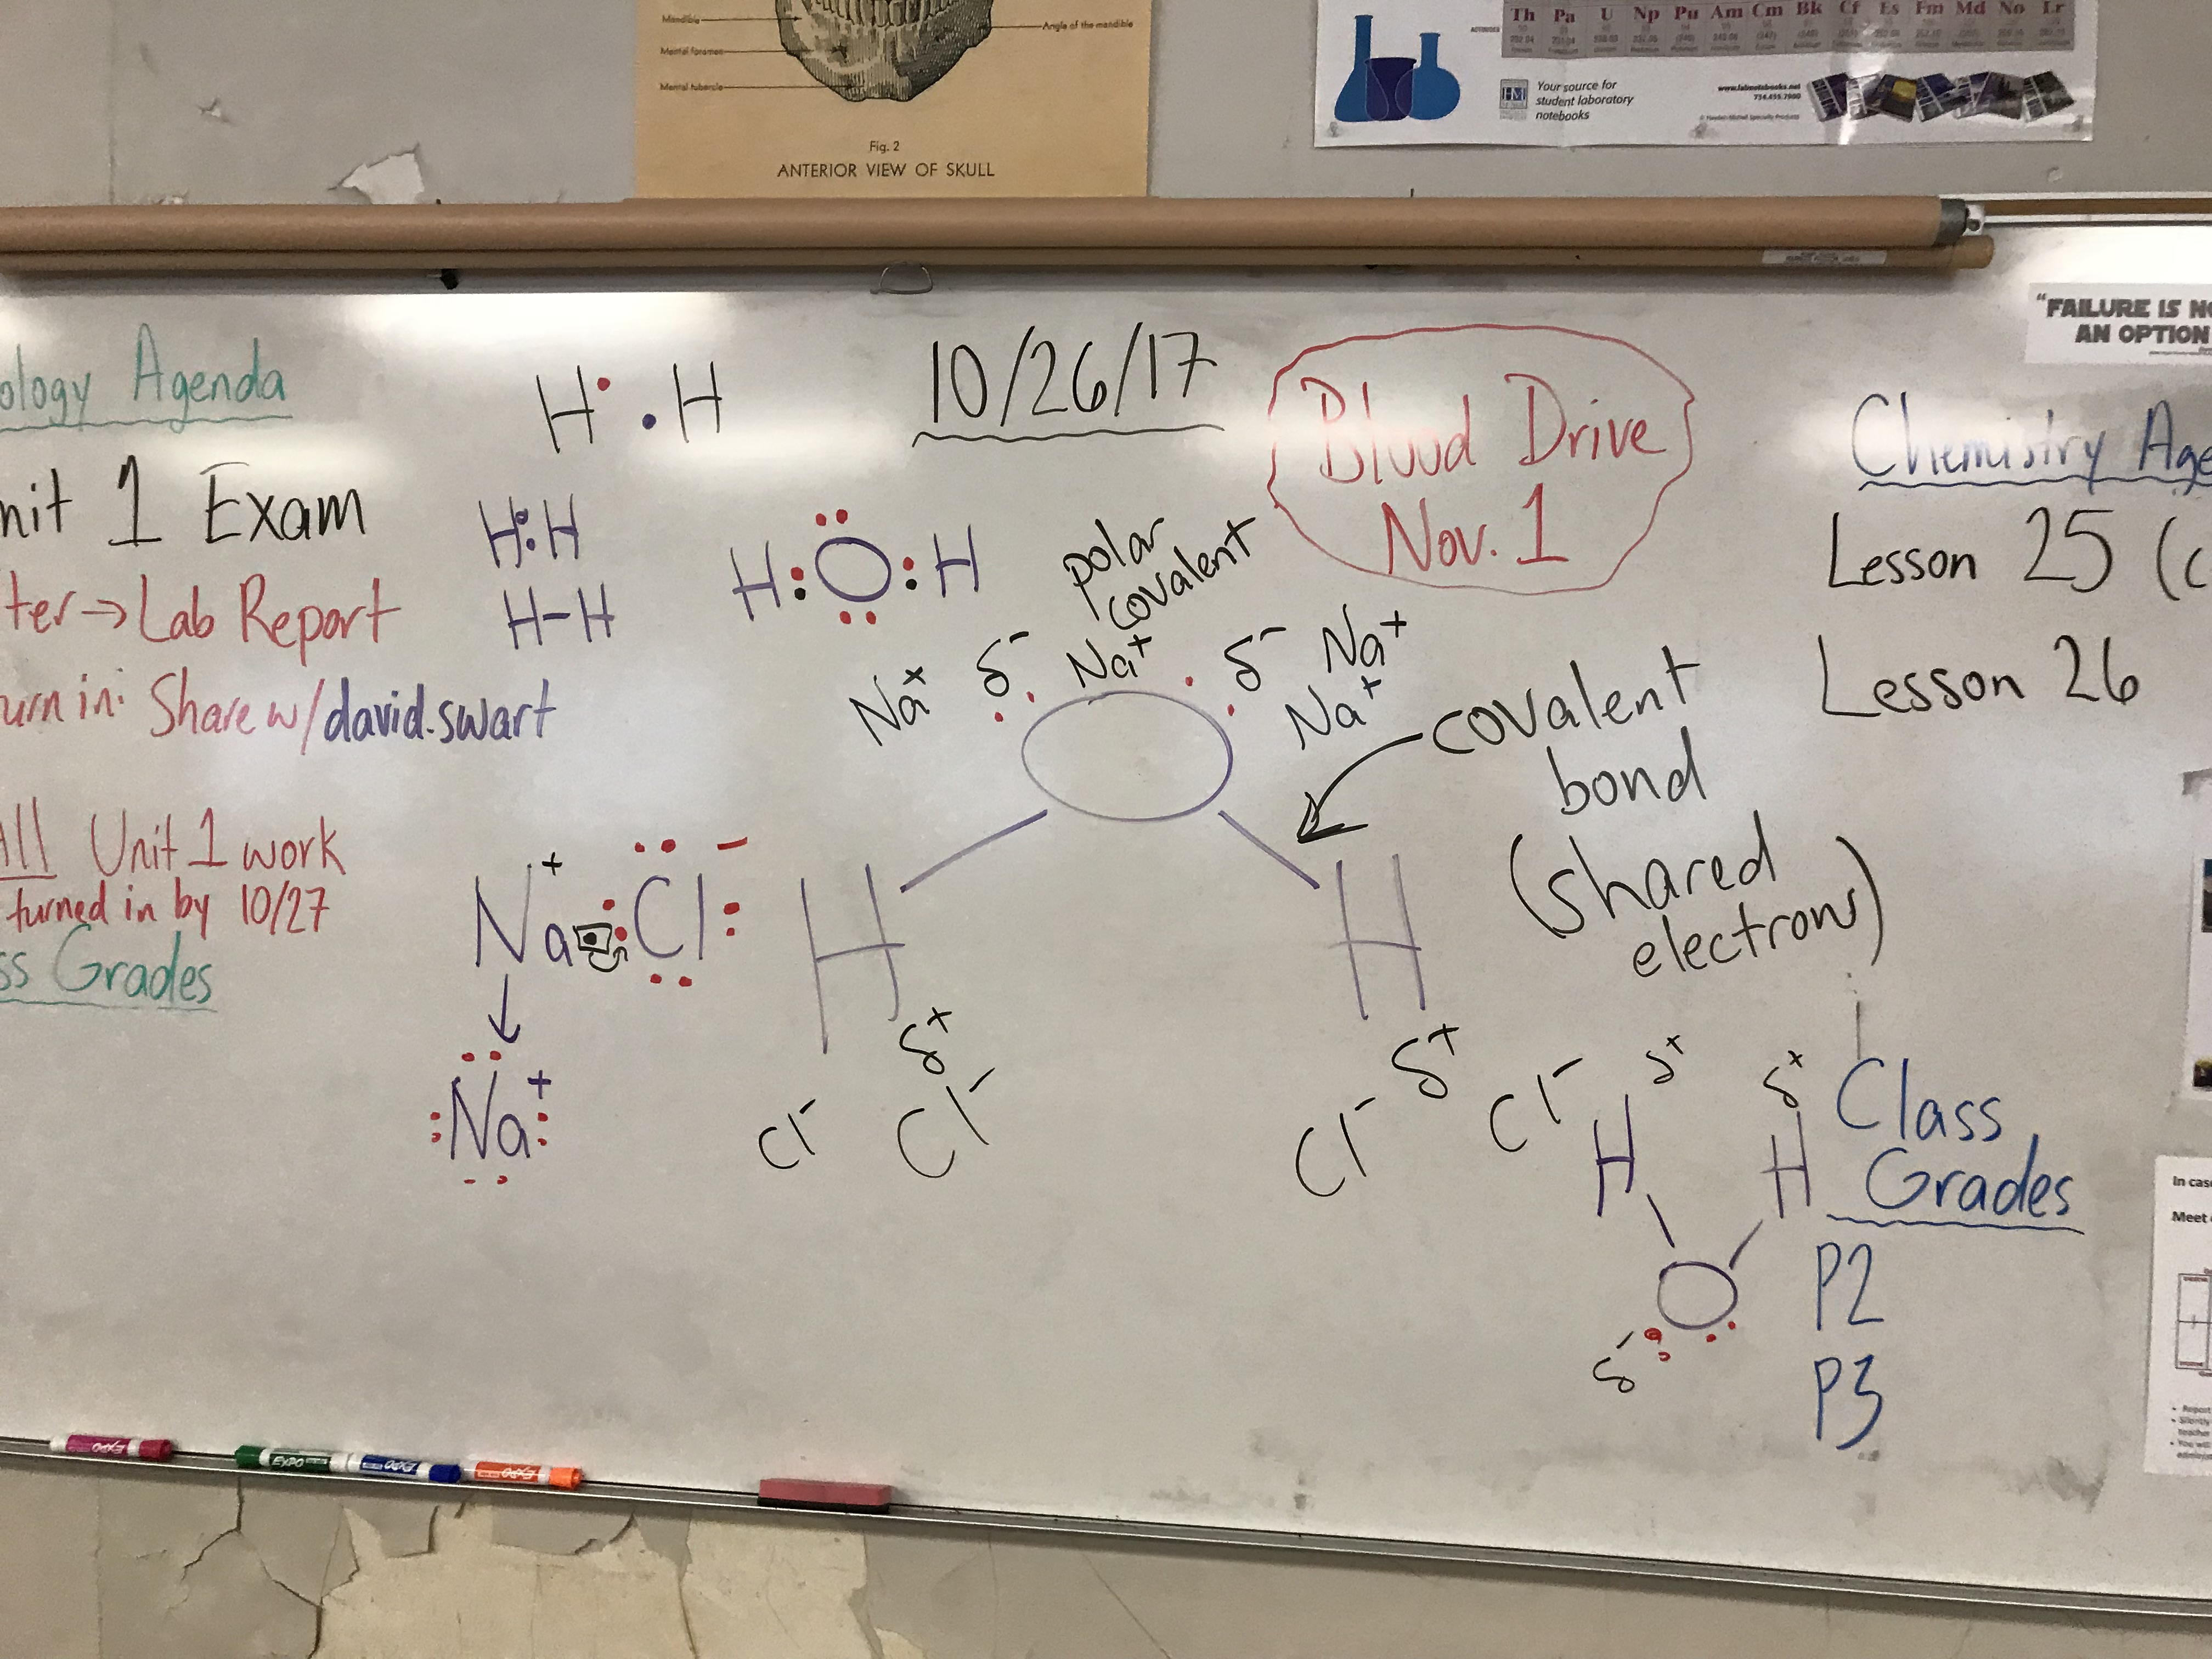 Mandible
Mental foramen
Mental tubercle
Angle of the mandible
Fig. 2
ANTERIOR VIEW OF SKULL
Th Pa U Np Pu Am Cm Bk Cf Es Fm Md No Lr
HM
Your source for
student laboratory
notebooks
www.labnotebooks.net
734.495.7900
"FAILURE IS NO
AN OPTION
ology Agenda
nit 1 Exam
ter → Lab Report
urn in: Share w/david.swart
All Unit 1 work
turned in by 10/27
ss Grades
H · · H
H:H
H-H
H:O:H
10/26/17
Blood Drive
Nov. 1
polar
covalent
Na+ δ- Na+ δ- Na+
Na+
covalent
bond
(shared
electrons)
H H
δ+ δ+
Cl- Cl- Cl- Cl-
Na+ Cl-
Na+
δ+ δ+
H H
O
δ-
Chemistry Age
Lesson 25 (c
Lesson 26
Class
Grades
P2
P3
In cas
Meet
EXPO
EXPO
EXPO
EXPO